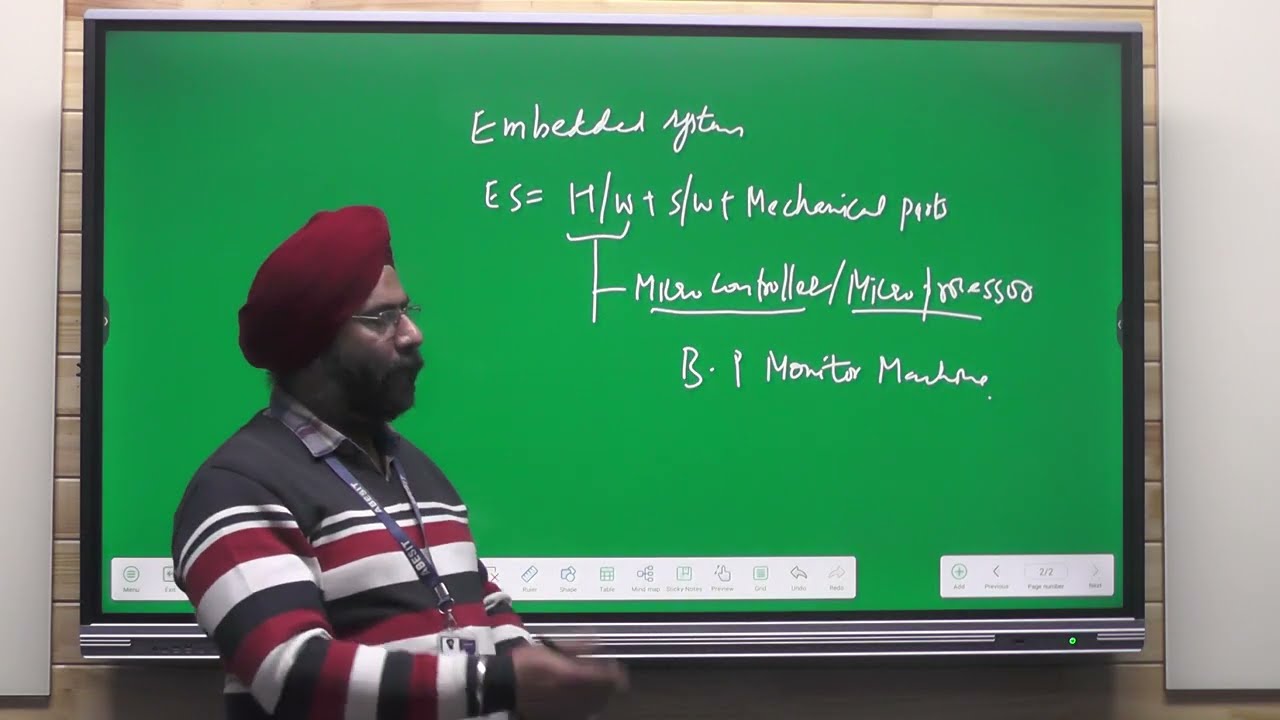 Embedded system
ES= H/W + S/W + Mechanical parts
Microcontroller/Microprocessor
B.P Monitor Machine.
ABESIT
ABESIT
Menu
Exit
Ruler
Shape
Table
Mind map
Sticky Notes
Preview
Grid
Undo
Redo
Add
Previous
2/2
Page number
Next